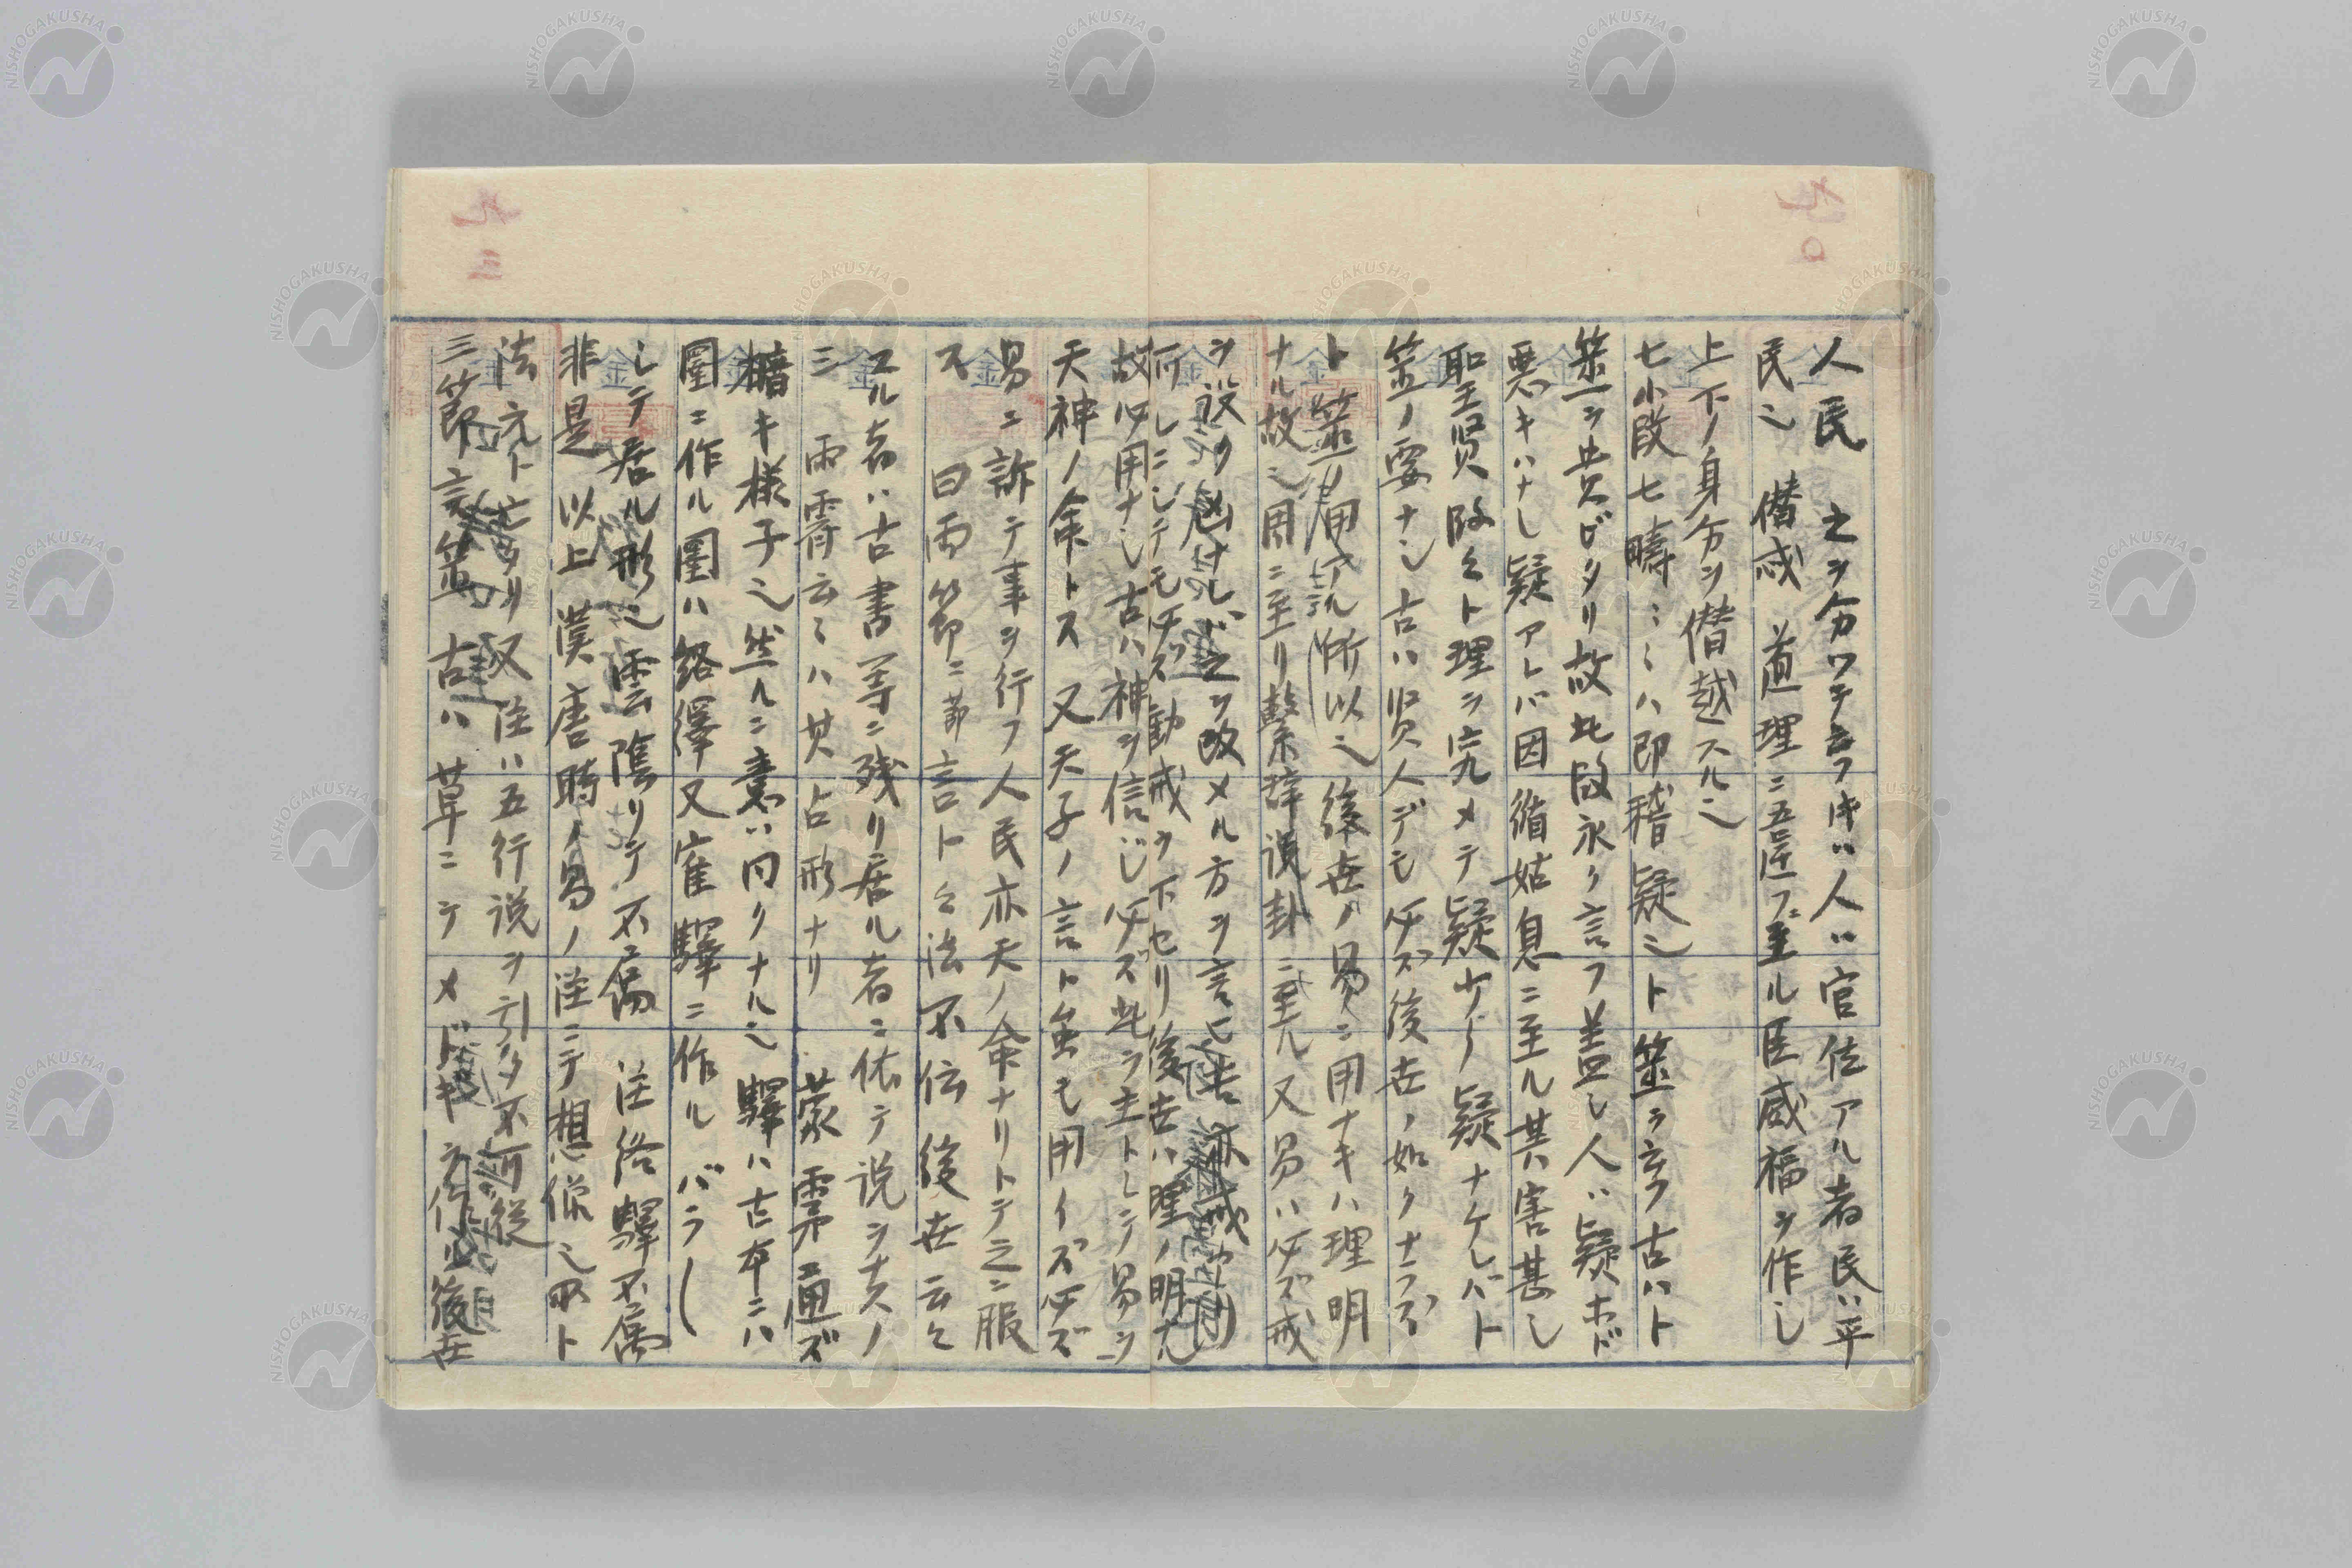 人民 之ヲ分ワテ言フ時ハ人ハ官位アル者民ハ平
民ニ 僭忒 道理ニ五匹フニ至ル臣威福ヲ作シ
上下ノ身分ヲ僭越スル也
七小段七疇ミミハ即稽疑也ト筮ヲ云フ古ハト
筮ヲ貴ビタリ故此段永ク言フ蓋シ人ハ疑ホド
悪キハナシ疑アレバ因循姑息ニ至ル其害甚シ
聖賢段々ト理ヲ究メテ疑少ク疑ナケレバト
筮ノ要ナシ古ハ賢人デモ必ズ後世ノ如クナラズ
ト筮ノ用 所以也後世ノ易ニ用ナキハ理明
ナル故也周ニ至リ繋辞説卦ニ至ル又易ハ必ズ戒
ヲ設ク凶ナレバ之ヲ改メル方ヲ言
何レニシテモ必ズ勧戒ヲ下セリ後古ハ理ノ明ナル
故必用ナシ古ハ神ヲ信ジ必ズ此ヲ主トシテ易ヲ
天神ノ命トス 又天子ノ言ト虽モ用イズ必ズ
易ニ訴テ事ヲ行フ人民亦天ノ命ナリトテ之ニ服
ス 曰雨節ニ節言ト々法不伝 後世云々
スル者ハ古書等ニ残リ居ル者ニ依テ説ヲナスノ
三 雨霽云々ハ其占形ナリ 蒙 霧通ズ
暗キ様子也然ルニ意ハ同クナル也驛ハ古本ニハ
圛ニ作ル圛ハ絡繹又寉驛ニ作ルバラ
シテ居ル形也雲陰リテ不属 注絡驛不属
非是 以上漢唐時ノ易ノ注ニテ想像也兎ト
法元ト亡タリ又注ハ五行説ヲ引タ不可従
三節言筮 古ハ草ニテメドギヲ作ル後世
九〇
九三
NISHOGAKUSHA